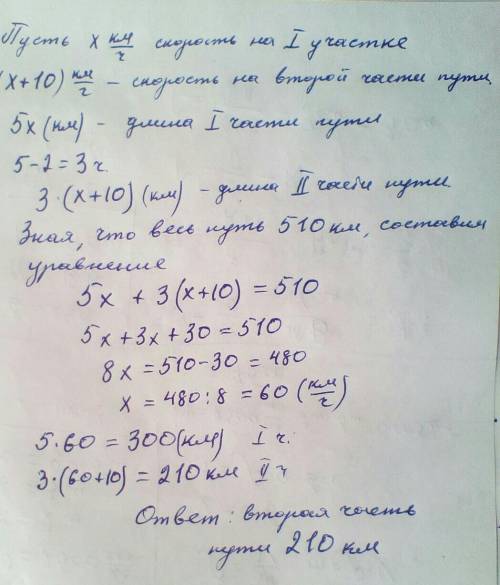 Пусть x км/ч скорость на I участке
(x+10) км/ч – скорость на второй части пути
5x (км) – длина I части пути
5-2=3 ч.
3·(x+10) (км) – длина II части пути.
Зная, что весь путь 510 км, составим
уравнение
5x + 3(x+10) = 510
5x+3x+30=510
8x = 510-30 = 480
x = 480:8 = 60 (км/ч)
5·60 = 300(км) I ч.
3·(60+10) = 210 км II ч
Ответ: вторая часть
пути 210 км